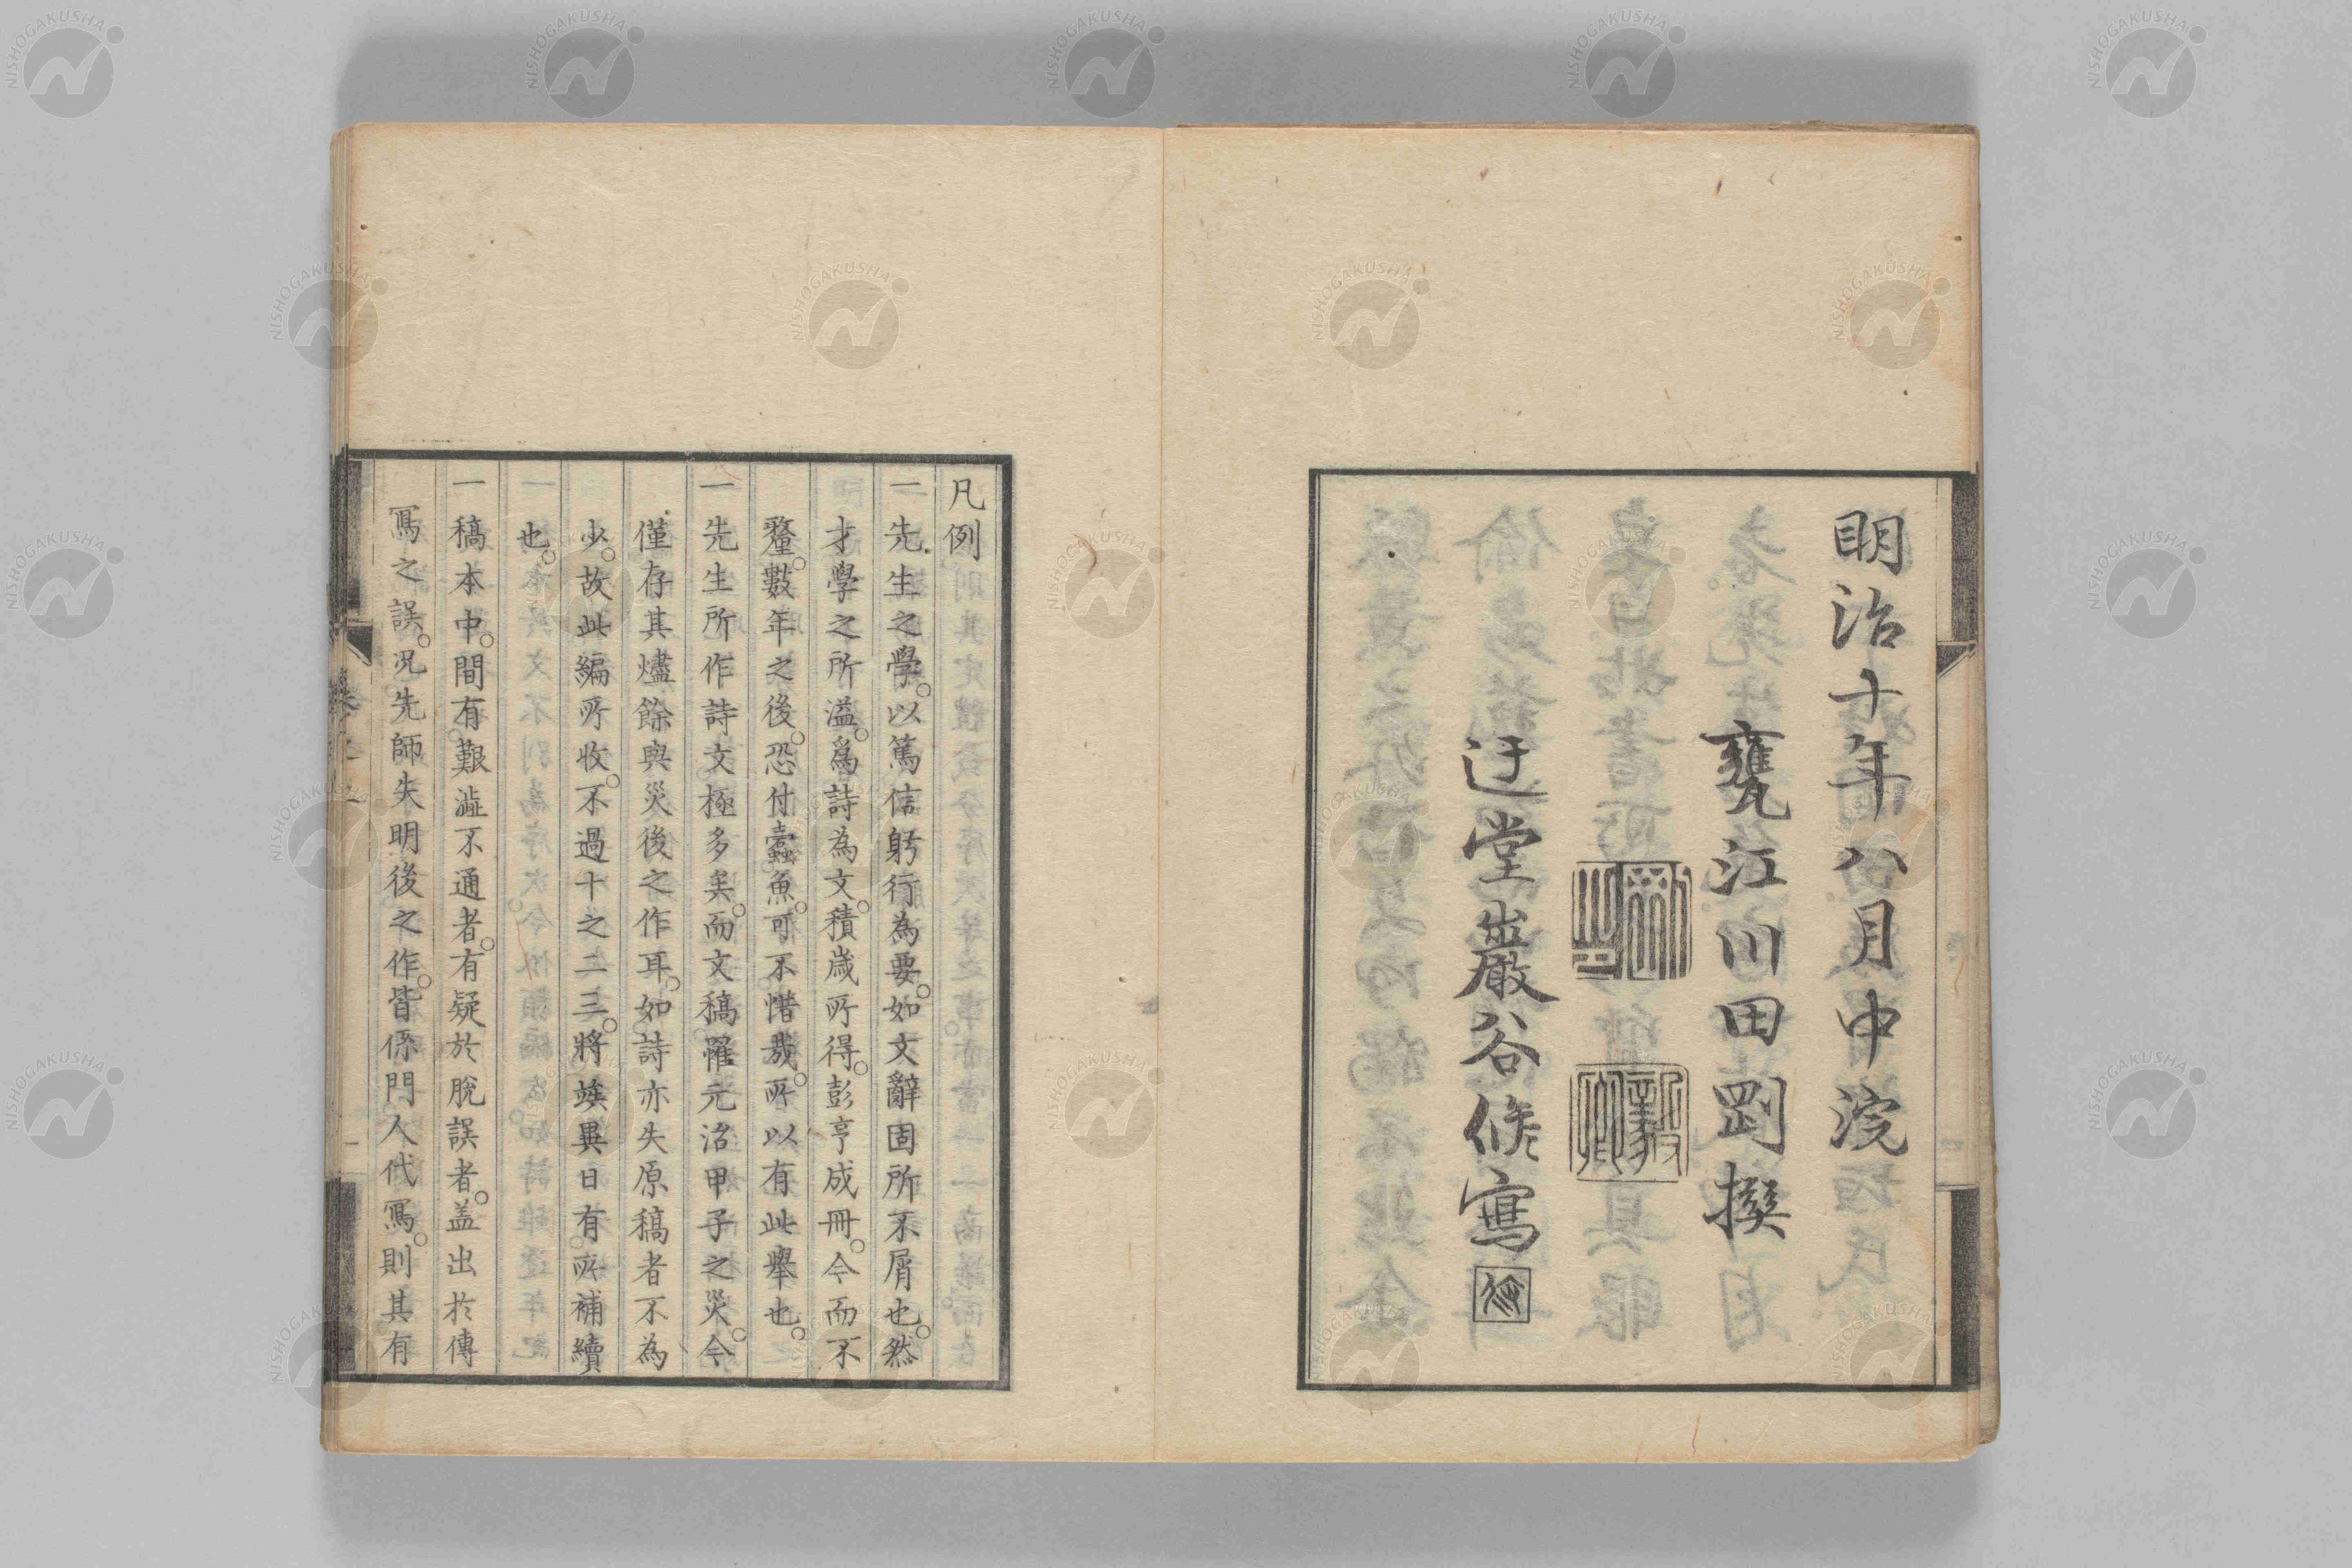 明治十年八月中浣
甕江川田剛撰
迂堂巖谷脩寫
凡例
一先生之學。以篤信躬行為要。如文辭固所不屑也。然
才學之所溢。爲詩為文。積歲所得。彭亨成冊。今而不
釐。數年之後。恐付蠹魚。可不惜哉。所以有此舉也。
一先生所作詩文極多矣。而文稿罹元治甲子之災。今
僅存其燼餘與災後之作耳。如詩亦失原稿者不為
少。故此編所收。不過十之二三。將竢異日有所補續
也。
一稿本中。間有艱澁不通者。有疑於脫誤者。蓋出於傳
寫之誤。況先師失明後之作。皆係門人代寫。則其有
NISHOGAKUSHA